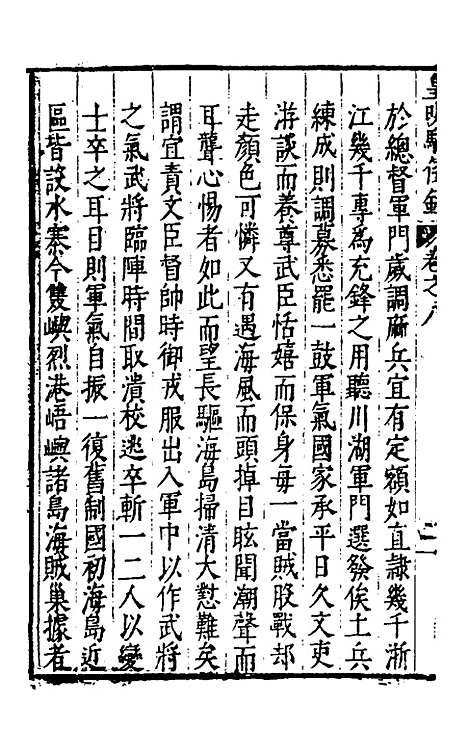 皇明馭倭錄 卷之八 二
於總督軍門歲調麻兵宜有定額如直隷幾千浙
江幾千專為充鋒之用聽川湖軍門選發俟土兵
練成則調募悉罷一鼓軍氣國家承平日久文吏
游談而養尊武臣恬嬉而保身每一當賊股戰却
走顏色可憐又有遇海風而頭掉目眩聞潮聲而
耳聾心惕者如此而望長驅海島掃清大憝難矣
謂宜責文臣督帥時御戎服出入軍中以作武將
之氣武將臨陣時間取潰校逃卒斬一二人以變
士卒之耳目則軍氣自振一復舊制國初海島近
區皆設水寨今雙嶼烈港峿嶼諸島海賊巢據者